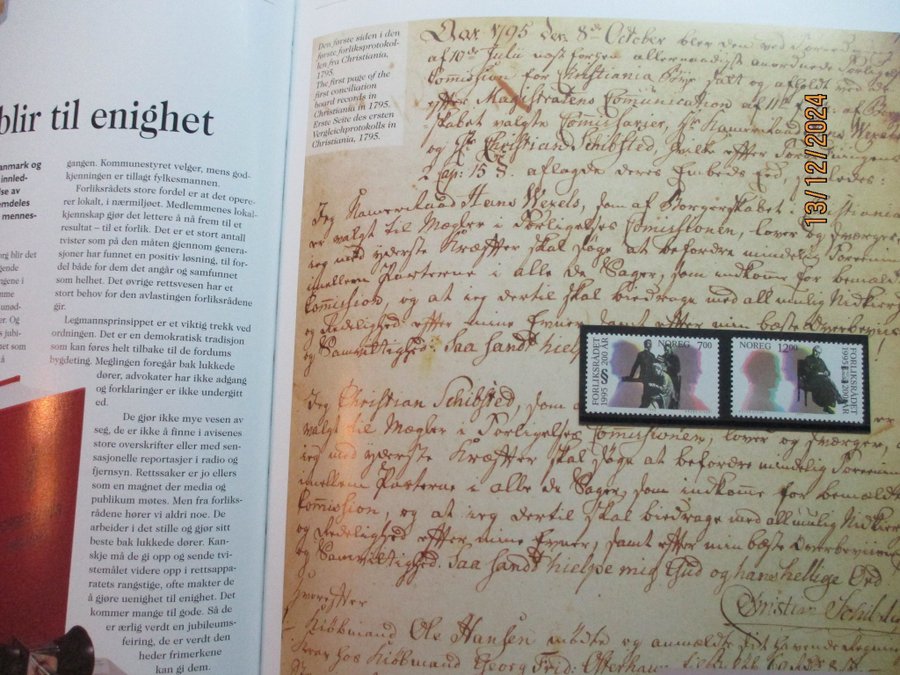 blir til enighet
anmark og
innled-
lse av
emdeles
mennes-
rg blir det
gende
ngene i
mme
unød-
er. Og
s jubi-
nt å
gangen. Kommunestyret velger, mens god-
kjenningen er tillagt fylkesmannen.
Forliksrådets store fordel er at det opere-
rer lokalt, i nærmiljøet. Medlemmenes lokal-
kjennskap gjør det lettere å nå frem til et
resultat – til et forlik. Det er et stort antall
tvister som på den måten gjennom genera-
sjoner har funnet en positiv løsning, til for-
del både for dem det angår og samfunnet
som helhet. Det øvrige rettsvesen har et
stort behov for den avlastingen forliksrådene
gir.
Legmannsprinsippet er et viktig trekk ved
ordningen. Det er en demokratisk tradisjon
som kan føres helt tilbake til de fordums
bygdeting. Meglingen foregår bak lukkede
dører, advokater har ikke adgang
og forklaringer er ikke undergitt
ed.
De gjør ikke mye vesen av
seg, de er ikke å finne i avisenes
store overskrifter eller med sen-
sasjonelle reportasjer i radio og
fjernsyn. Rettssaker er jo ellers
som en magnet der media og
publikum møtes. Men fra forliks-
rådene hører vi aldri noe. De
arbeider i det stille og gjør sitt
beste bak lukkede dører. Kan-
skje må de gi opp og sende tvi-
stemålet videre opp i rettsappa-
ratets rangstige, ofte makter de
å gjøre uenighet til enighet. Det
kommer mange til gode. Så de
er ærlig verdt en jubileums-
feiring, de er verdt den
heder frimerkene
kan gi dem.
Den første siden i den
første forliksprotokol-
len fra Christiania,
1795.
The first page of the
first conciliation
board records in
Christiania in 1795.
Erste Seite des ersten
Vergleichprotokolls in
Christiania, 1795.
1795 den 8de October blev den ved
af 10de Julii næstforgen allernaadigst anordnede Forligelses
Comission for Christiania Bye sadt og afholdt
efter Magistratens Comunication af 11te
skabet valgte Comissarier, Hr. Kamerraad Wexels
og Hr. Christian Schibsted, hvilke efter Forordningens
2 Cap: 15 §. aflagde deres Embeds Eed, saaledes
Jeg Kamerraad Hans Wexels, som af Borgerskabet i Christiania
er valgt til Mægler i Forligelses Comissionen, lover og sværger,
ieg med yderste Kræffter skal søge at befordre mindelig Foreening
imellem Parterne i alle de Sager, som indkomme for bemældte
Comission, og at ieg dertil skal biedrage med all mulig Nidkierhed
og Redelighed efter mine Evner, samt efter min bæste Overbeviisning
og Samvittighed. Saa sandt hielpe
Jeg Christian Schibsted, som
valgt til Mægler i Forligelses Comissionen, lover og sværger,
ieg med yderste Kræffter skal søge at befordre mindelig Foreening
imellem Parterne i alle de Sager, som indkomme for bemældte
Comission, og at ieg dertil skal biedrage med all mulig Nidkierhed
og Redelighed efter mine Evner, samt efter min bæste Overbeviisning
og Samvittighed. Saa sandt hielpe mig Gud og hans hellige Ord
Christen Schibsted
hvorefter
Kiøbmand Ole Hansen mødte og anmældte
hos Kiøbmand Georg Frid:
FORLIKSRÅDET
1995 § 200 ÅR
NOREG 7.00
NOREG 12.00
FORLIKSRÅDET
1995 200 ÅR
13/12/2024